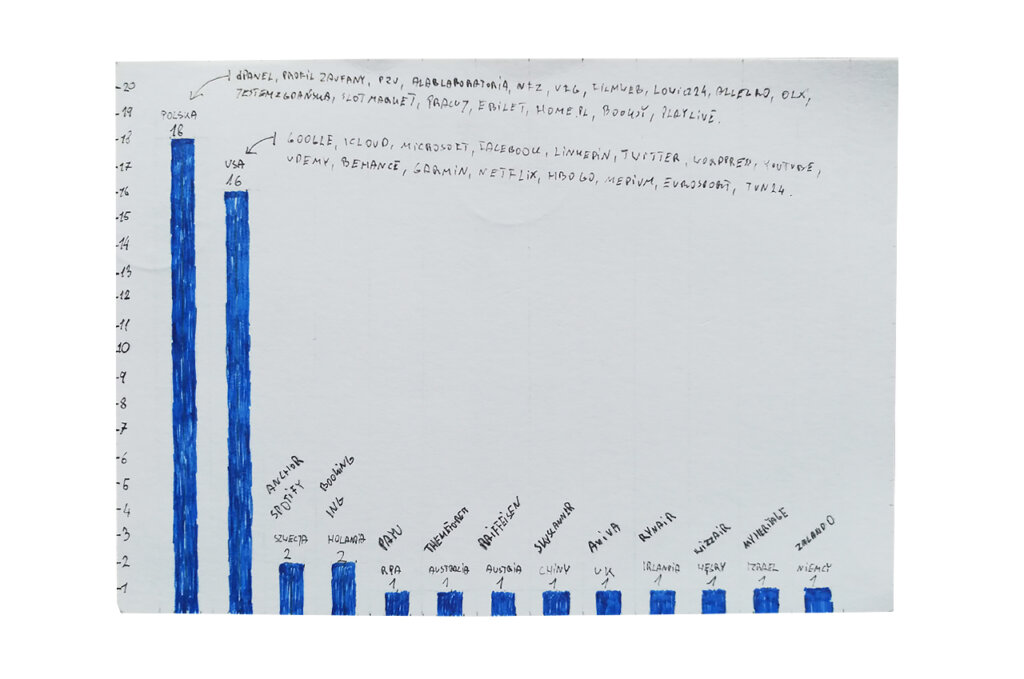 20
19
18
17
16
15
14
13
12
11
10
9
8
7
6
5
4
3
2
1
POLSKA
16
DPANEL, PROFIL ZAUFANY, PZU, ALABLABORATORIA, NFZ, VZG, FILMWEB, LOVIQ24, ALLEGRO, OLX,
TESTEMZGDAŃSKA, SLOT MARKET, PRACUJ, EBILET, HOME.PL, BOOKSY, PLAYLIVE.
USA
16
GOOGLE, ICLOUD, MICROSOFT, FACEBOOK, LINKEDIN, TWITTER, WORDPRESS, YOUTUBE,
UDEMY, BEHANCE, GARMIN, NETFLIX, HBO GO, MEDIUM, EUROSPORT, TVN24.
ANCHOR
SPOTIFY
SZWECJA
2
BOOKING
ING
HOLANDIA
2
PAYU
RPA
1
THEMEFOREST
AUSTRALIA
1
RAIFFEISEN
AUSTRIA
1
SKYSCANNER
CHINY
1
AVIVA
UK
1
RYNAIR
IRLANDIA
1
WIZZAIR
WĘGRY
1
MYHERITAGE
IZRAEL
1
ZALANDO
NIEMCY
1